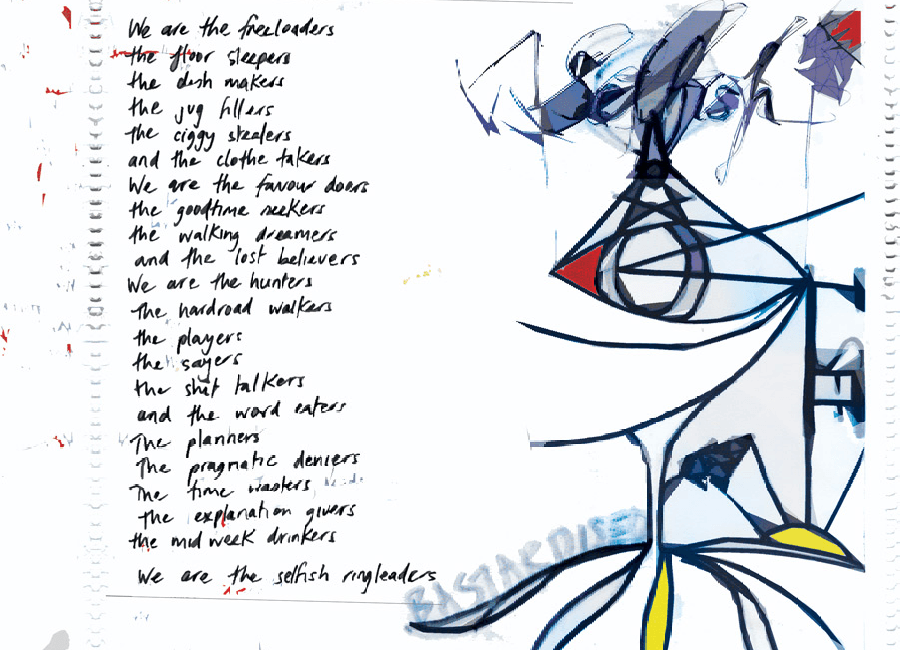 We are the freeloaders
the floor sleepers
the dish makers
the jug fillers
the ciggy stealers
and the clothe takers
We are the favour doers
the goodtime seekers
the walking dreamers
and the lost believers
We are the hunters
The hardroad walkers
the players
the sayers
the shit talkers
and the word eaters
The planners
The pragmatic deniers
The time wasters
the explanation givers
the mid week drinkers
We are the selfish ringleaders
BASTARDISED